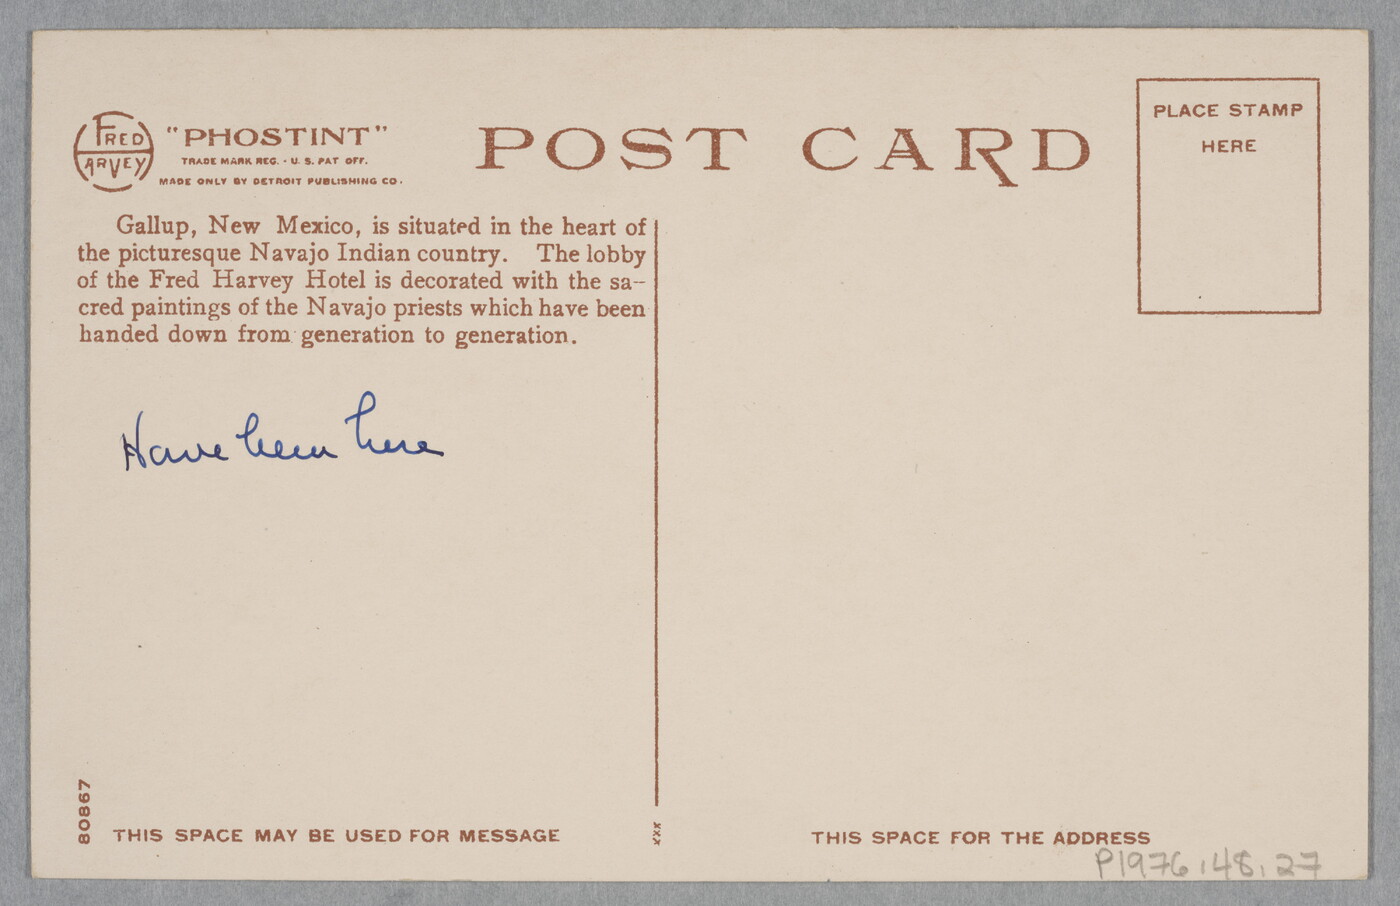 FRED
HARVEY
"PHOSTINT"
TRADE MARK REG. - U. S. PAT OFF.
MADE ONLY BY DETROIT PUBLISHING CO.
POST CARD
PLACE STAMP
HERE
Gallup, New Mexico, is situated in the heart of
the picturesque Navajo Indian country. The lobby
of the Fred Harvey Hotel is decorated with the sa-
cred paintings of the Navajo priests which have been
handed down from generation to generation.
Have been here
80867
THIS SPACE MAY BE USED FOR MESSAGE
xxx
THIS SPACE FOR THE ADDRESS
P1976.48.27